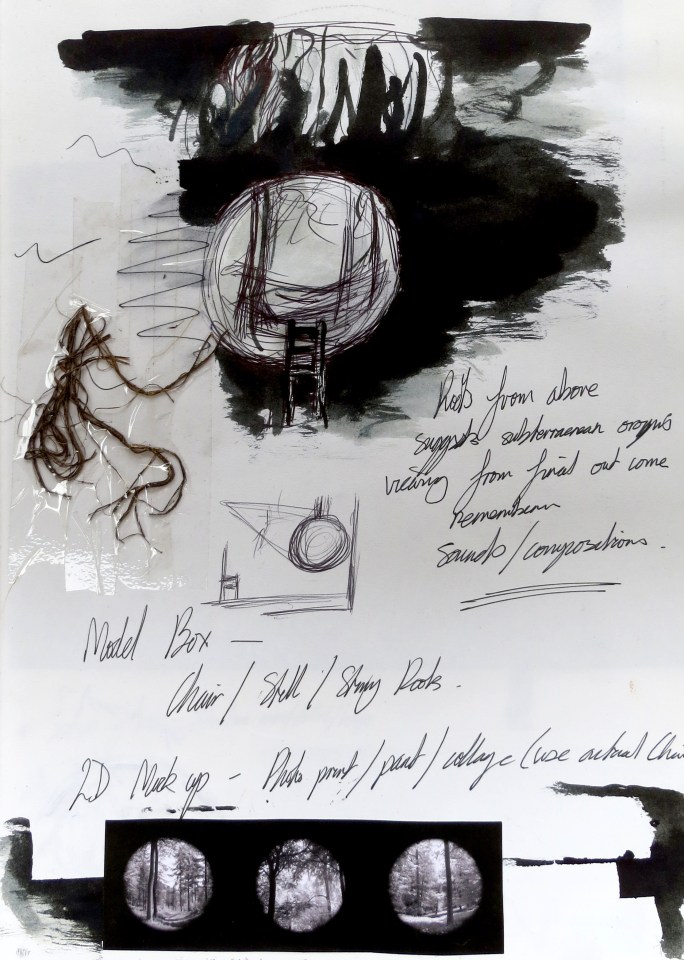 Roots from above
suggests subterranean origins
viewing from final out come
Remember
Sounds/compositions.
Model Box —
Chair / Shell / String Roots.
2D Mock up - Photo print/paint/collage (use actual Chair